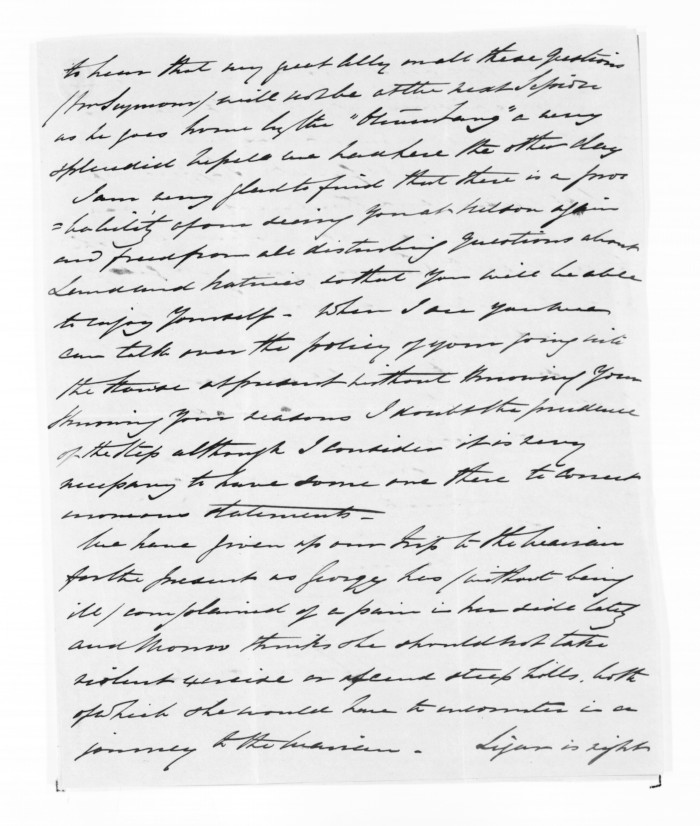 to hear that my great Ally on all these Questions
/Mr Seymour/ will not be at the next Session
as he goes home by the " " a very
splendid vessel we had here the other day
I am very glad to find that there is a pro
=bability of our seeing you at Nelson again
and freed from all disturbing Questions about
Land and Natives so that you will be able
to enjoy yourself - When I see you we
can talk over the policy of your going into
the House at present without Knowing Your
Knowing Your reasons I doubt the prudence
of the step although I consider it is very
necessary to have some one there to correct
erroneous statements -
We have given up our trip to the Wairau
for the present as Georgy has /without being
ill/ complained of a pain in her side lately
and Monro thinks she should not take
violent exercise or ascend steep hills, both
of which she would have to encounter in a
journey to the Wairau - is right